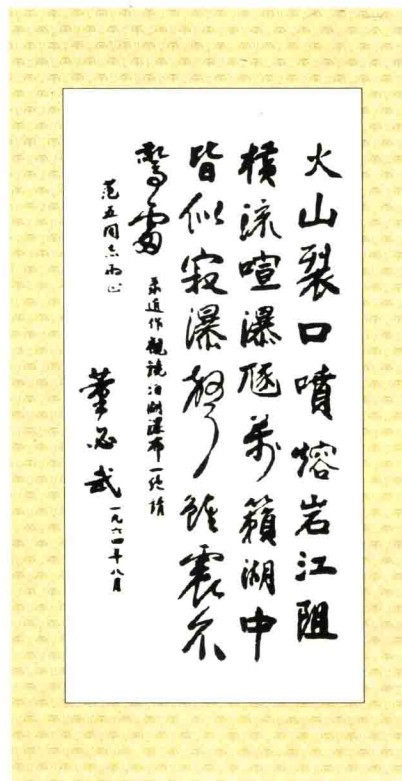 火山裂口噴熔岩江阻
橫流喧瀑隘萬籟湖中
皆似寂瀑聲雖震不
驚雷
录近作觀镜泊湖瀑布一绝请
范五同志两正
董必武 一九六四年八月